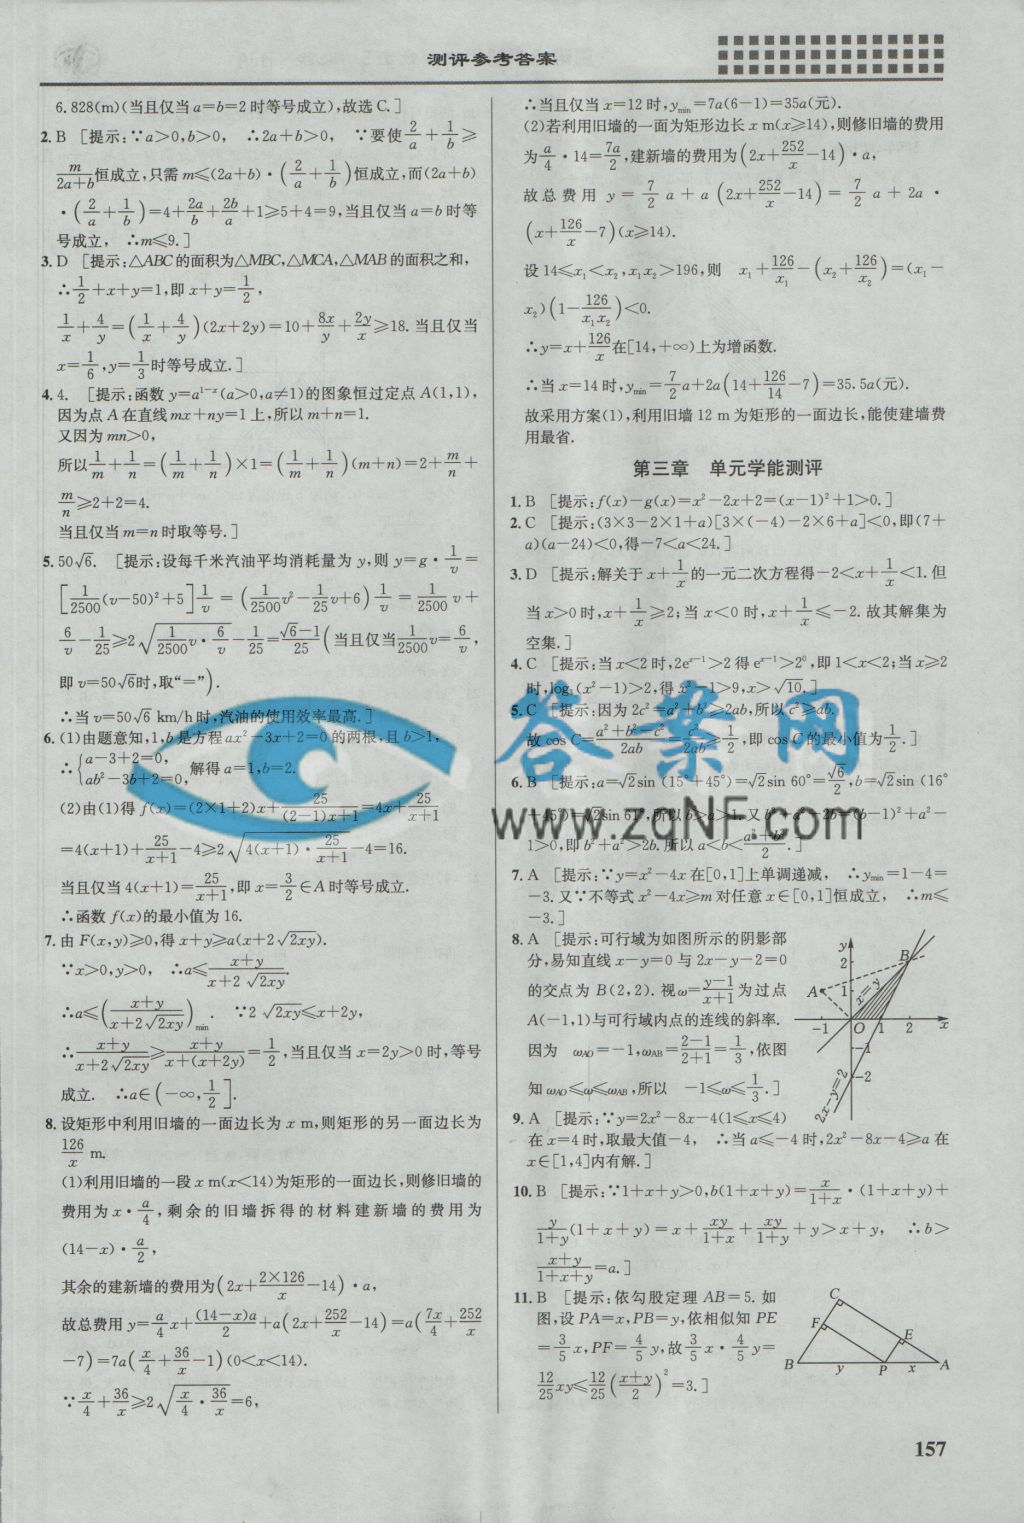 测评参考答案
6.828(m)(当且仅当a=b=2时等号成立),故选C.]
2. B [提示:∵a>0,b>0, ∴2a+b>0, ∵要使2/a+1/b≥
m/(2a+b)恒成立,只需m≤(2a+b)·(2/a+1/b)恒成立,而(2a+b)
·(2/a+1/b)=4+2a/b+2b/a+1≥5+4=9,当且仅当a=b时等
号成立, ∴m≤9.]
3. D [提示:△ABC的面积为△MBC,△MCA,△MAB的面积之和,
∴1/2+x+y=1,即x+y=1/2,
1/x+4/y=(1/x+4/y)(2x+2y)=10+8x/y+2y/x≥18.当且仅当
x=1/6,y=1/3时等号成立.]
4. 4. [提示:函数y=a^(1-x)(a>0,a≠1)的图象恒过定点A(1,1),
因为点A在直线mx+ny=1上,所以m+n=1.
又因为mn>0,
所以1/m+1/n=(1/m+1/n)×1=(1/m+1/n)(m+n)=2+m/n+
m/n≥2+2=4.
当且仅当m=n时取等号.]
5. 50√6. [提示:设每千米汽油平均消耗量为y,则y=g·1/v=
[1/2500(v-50)²+5]1/v=(1/2500v²-1/25v+6)1/v=1/2500v+
6/v-1/25≥2√(1/2500v·6/v)-1/25=(√6-1)/25(当且仅当1/2500v=6/v,
即v=50√6时,取“=”).
∴当v=50√6 km/h时,汽油的使用效率最高.]
6. (1)由题意知,1,b是方程ax²-3x+2=0的两根,且b>1,
∴{a-3+2=0, ab²-3b+2=0, 解得a=1,b=2.
(2)由(1)得f(x)=(2×1+2)x+25/((2-1)x+1)=4x+25/(x+1)
=4(x+1)+25/(x+1)-4≥2√(4(x+1)·25/(x+1))-4=16.
当且仅当4(x+1)=25/(x+1),即x=3/2∈A时等号成立.
∴函数f(x)的最小值为16.
7. 由F(x,y)≥0,得x+y≥a(x+2√(2xy)).
∵x>0,y>0, ∴a≤(x+y)/(x+2√(2xy)).
∴a≤((x+y)/(x+2√(2xy)))min. ∵2√(2xy)≤x+2y,
∴(x+y)/(x+2√(2xy))≥(x+y)/(x+(x+2y))=1/2,当且仅当x=2y>0时,等号
成立. ∴a∈(-∞,1/2].
8. 设矩形中利用旧墙的一面边长为x m,则矩形的另一面边长为
126/x m.
(1)利用旧墙的一段x m(x<14)为矩形的一面边长,则修旧墙的
费用为x·a/4,剩余的旧墙拆得的材料建新墙的费用为
(14-x)·a/2,
其余的建新墙的费用为(2x+(2×126)/x-14)·a,
故总费用y=a/4x+(14-x)a/2+a(2x+252/x-14)=a(7x/4+252/x
-7)=7a(x/4+36/x-1)(0<x<14).
∵x/4+36/x≥2√(x/4·36/x)=6,
∴当且仅当x=12时,ymin=7a(6-1)=35a(元).
(2)若利用旧墙的一面为矩形边长x m(x≥14),则修旧墙的费用
为a/4·14=7a/2,建新墙的费用为(2x+252/x-14)·a,
故总费用y=7/2a+a(2x+252/x-14)=7/2a+2a·
(x+126/x-7)(x≥14).
设14≤x₁<x₂,x₁x₂>196,则 x₁+126/x₁-(x₂+126/x₂)=(x₁-
x₂)(1-126/(x₁x₂))<0.
∴y=x+126/x在[14,+∞)上为增函数.
∴当x=14时,ymin=7/2a+2a(14+126/14-7)=35.5a(元).
故采用方案(1),利用旧墙12 m为矩形的一面边长,能使建墙费
用最省.
第三章 单元学能测评
1. B [提示:f(x)-g(x)=x²-2x+2=(x-1)²+1>0.]
2. C [提示:(3×3-2×1+a)[3×(-4)-2×6+a]<0,即(7+
a)(a-24)<0,得-7<a<24.]
3. D [提示:解关于x+1/x的一元二次方程得-2<x+1/x<1.但
当x>0时,x+1/x≥2;当x<0时,x+1/x≤-2.故其解集为
空集.]
4. C [提示:当x<2时,2e^(x-1)>2得e^(x-1)>2⁰,即1<x<2;当x≥2
时,log₃(x²-1)>2,得x²-1>9,x>√10.]
5. C [提示:因为2c²=a²+b²≥2ab,所以c²≥ab.
故cos C=(a²+b²-c²)/2ab=c²/2ab≥1/2,即cos C的最小值为1/2.]
6. B [提示:a=√2sin(15°+45°)=√2sin 60°=√6/2,b=√2sin(16°
+45°)=√2sin 61°,所以b>a>1.又b²+a²-2b=(b-1)²+a²-
1>0,即b²+a²>2b.所以a<b<(a²+b²)/2.]
7. A [提示:∵y=x²-4x在[0,1]上单调递减, ∴ymin=1-4=
-3.又∵不等式x²-4x≥m对任意x∈[0,1]恒成立, ∴m≤
-3.]
8. A [提示:可行域为如图所示的阴影部
分,易知直线x-y=0与2x-y-2=0
的交点为B(2,2).视ω=(y-1)/(x+1)为过点
A(-1,1)与可行域内点的连线的斜率.
因为 ωAO=-1,ωAB=(2-1)/(2+1)=1/3,依图
知ωAO≤ω≤ωAB,所以 -1≤ω≤1/3.]
y
2
B
A
1
x=y
-1
O
1
2
x
-1
-2
2x-y=2
9. A [提示:∵y=2x²-8x-4(1≤x≤4)
在x=4时,取最大值-4, ∴当a≤-4时,2x²-8x-4≥a在
x∈[1,4]内有解.]
10. B [提示:∵1+x+y>0,b(1+x+y)=x/(1+x)·(1+x+y)+
y/(1+y)(1+x+y)=x+xy/(1+x)+xy/(1+y)+y>x+y, ∴b>
(x+y)/(1+x+y)=a.]
11. B [提示:依勾股定理AB=5.如
图,设PA=x,PB=y,依相似知PE
=3/5x,PF=4/5y,故3/5x·4/5y=
12/25xy≤12/25((x+y)/2)²=3.]
C
F
E
B
y
P
x
A
答案网
www.zqNF.com
157